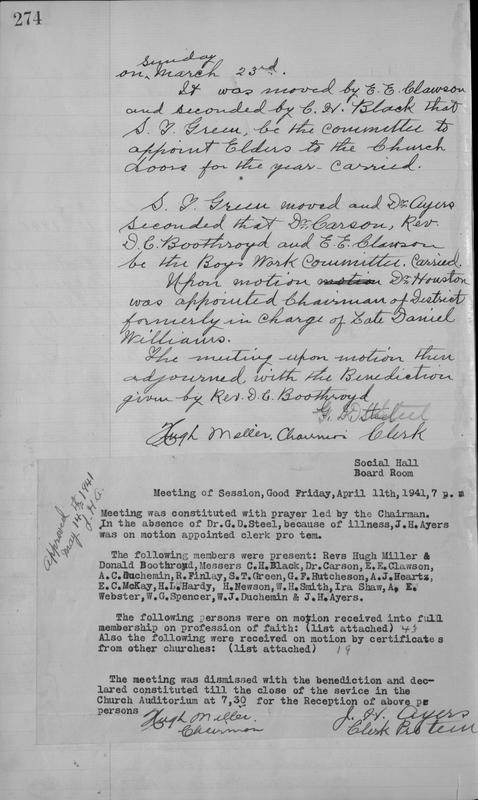 274
Sunday
on, March 23rd.
It was moved by E. E. Clawson
and seconded by C. H. Black that
S. T. Green, be the committee to
appoint Elders to the Church
doors for the year - carried.
S. T. Green moved and Dr. Ayers
seconded that Dr. Carson, Rev.
D. C. Boothroyd and E. E. Clawson
be the Boys Work Committee. Carried.
Upon motion motion Dr. Houston
was appointed Chairman of District
formerly in charge of Late Daniel
Williams.
The meeting upon motion then
adjourned with the Benediction
given by Rev. D. C. Boothroyd
G. D. Steel
Hugh Miller. Chairman Clerk
Social Hall
Board Room
Approved
May 14th, 1941
Meeting of Session, Good Friday, April 11th, 1941, 7 p.m
Meeting was constituted with prayer led by the Chairman.
In the absence of Dr.G.D.Steel, because of illness, J.H.Ayers
was on motion appointed clerk pro tem.
The following members were present: Revs Hugh Miller &
Donald Boothroyd, Messers C.H.Black, Dr.Carson, E.E.Clawson,
A.C.Duchemin, R.Finlay, S.T.Green, G.F.Hutcheson, A.J.Heartz,
E.C.McKay, H.L.Hardy, H.Newson, W.H.Smith, Ira Shaw, A. E.
Webster, W.G.Spencer, W.J.Duchemin & J.H.Ayers.
The following persons were on motion received into full
membership on profession of faith: (list attached) 43
Also the following were received on motion by certificates
from other churches: (list attached) 19
The meeting was dismissed with the benediction and dec-
lared constituted till the close of the sevice in the
Church Auditorium at 7,30 for the Reception of above pe
persons
Hugh Miller. J. H. Ayers
Chairman Clerk Protem